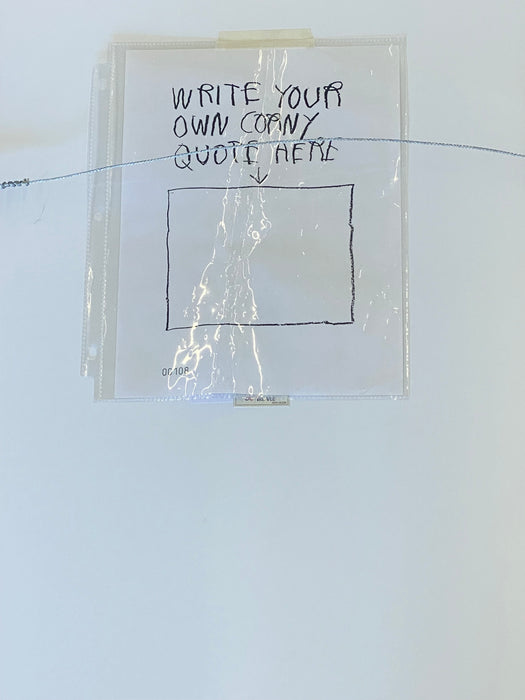 WRITE YOUR
OWN CORNY
QUOTE HERE
00108